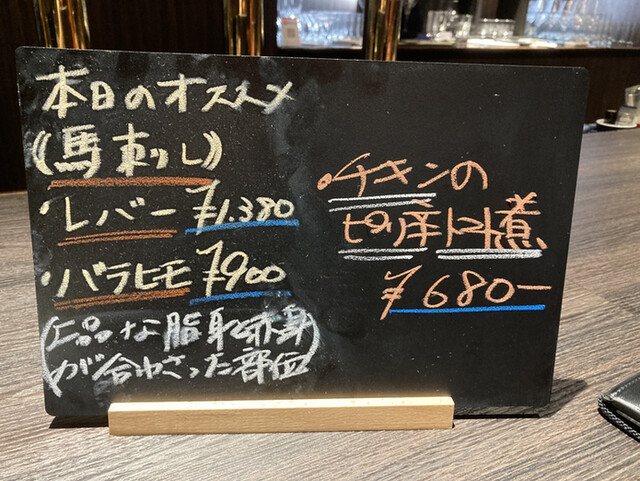 本日のオススメ
(馬刺し)
・レバー ¥1.380
・バラヒモ ¥900
(上品な脂と赤身
が合わさった部位)
・チキンの
ピリ辛トマト煮
¥680-